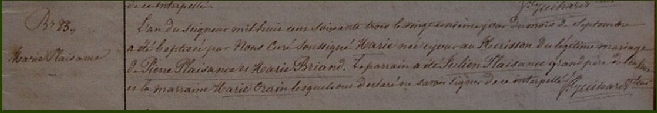 de ce interpellé
Bt 23.
Marie Plaisance
L'an du Seigneur mil huit cent soixante trois le vingt du mois de Septembre
a été baptisée par Nous Curé Soussigné Marie née hier au Hérisson du légitime mariage
de Pierre Plaisance & Marie Briand. Le parrain a été Julien Plaisance grand père de l'enfant
et la marraine Marie Orain lesquels ont déclaré ne savoir signer de ce interpellés